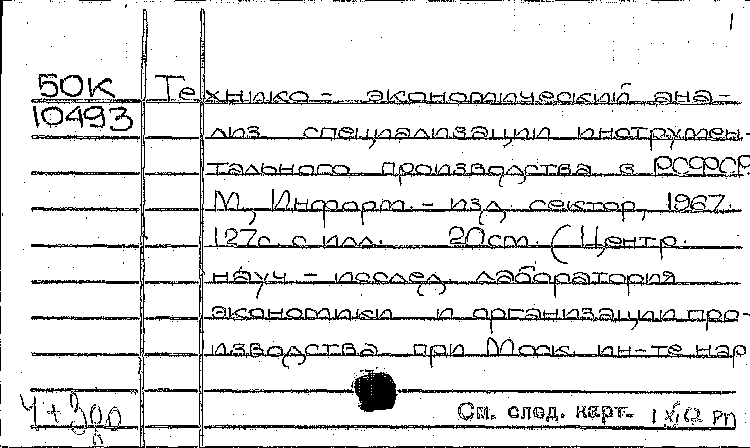 1
50К Технико-экономический ана-
10493
лиз специализации инструмен-
тального производства в РСФСР
М, Информ.-изд. сектор, 1967.
127с. с илл. 20см. (Центр.
науч-исслед. лаборатория
экономики и организации про-
изводства при Моск ин-те нар
См. след. карт.